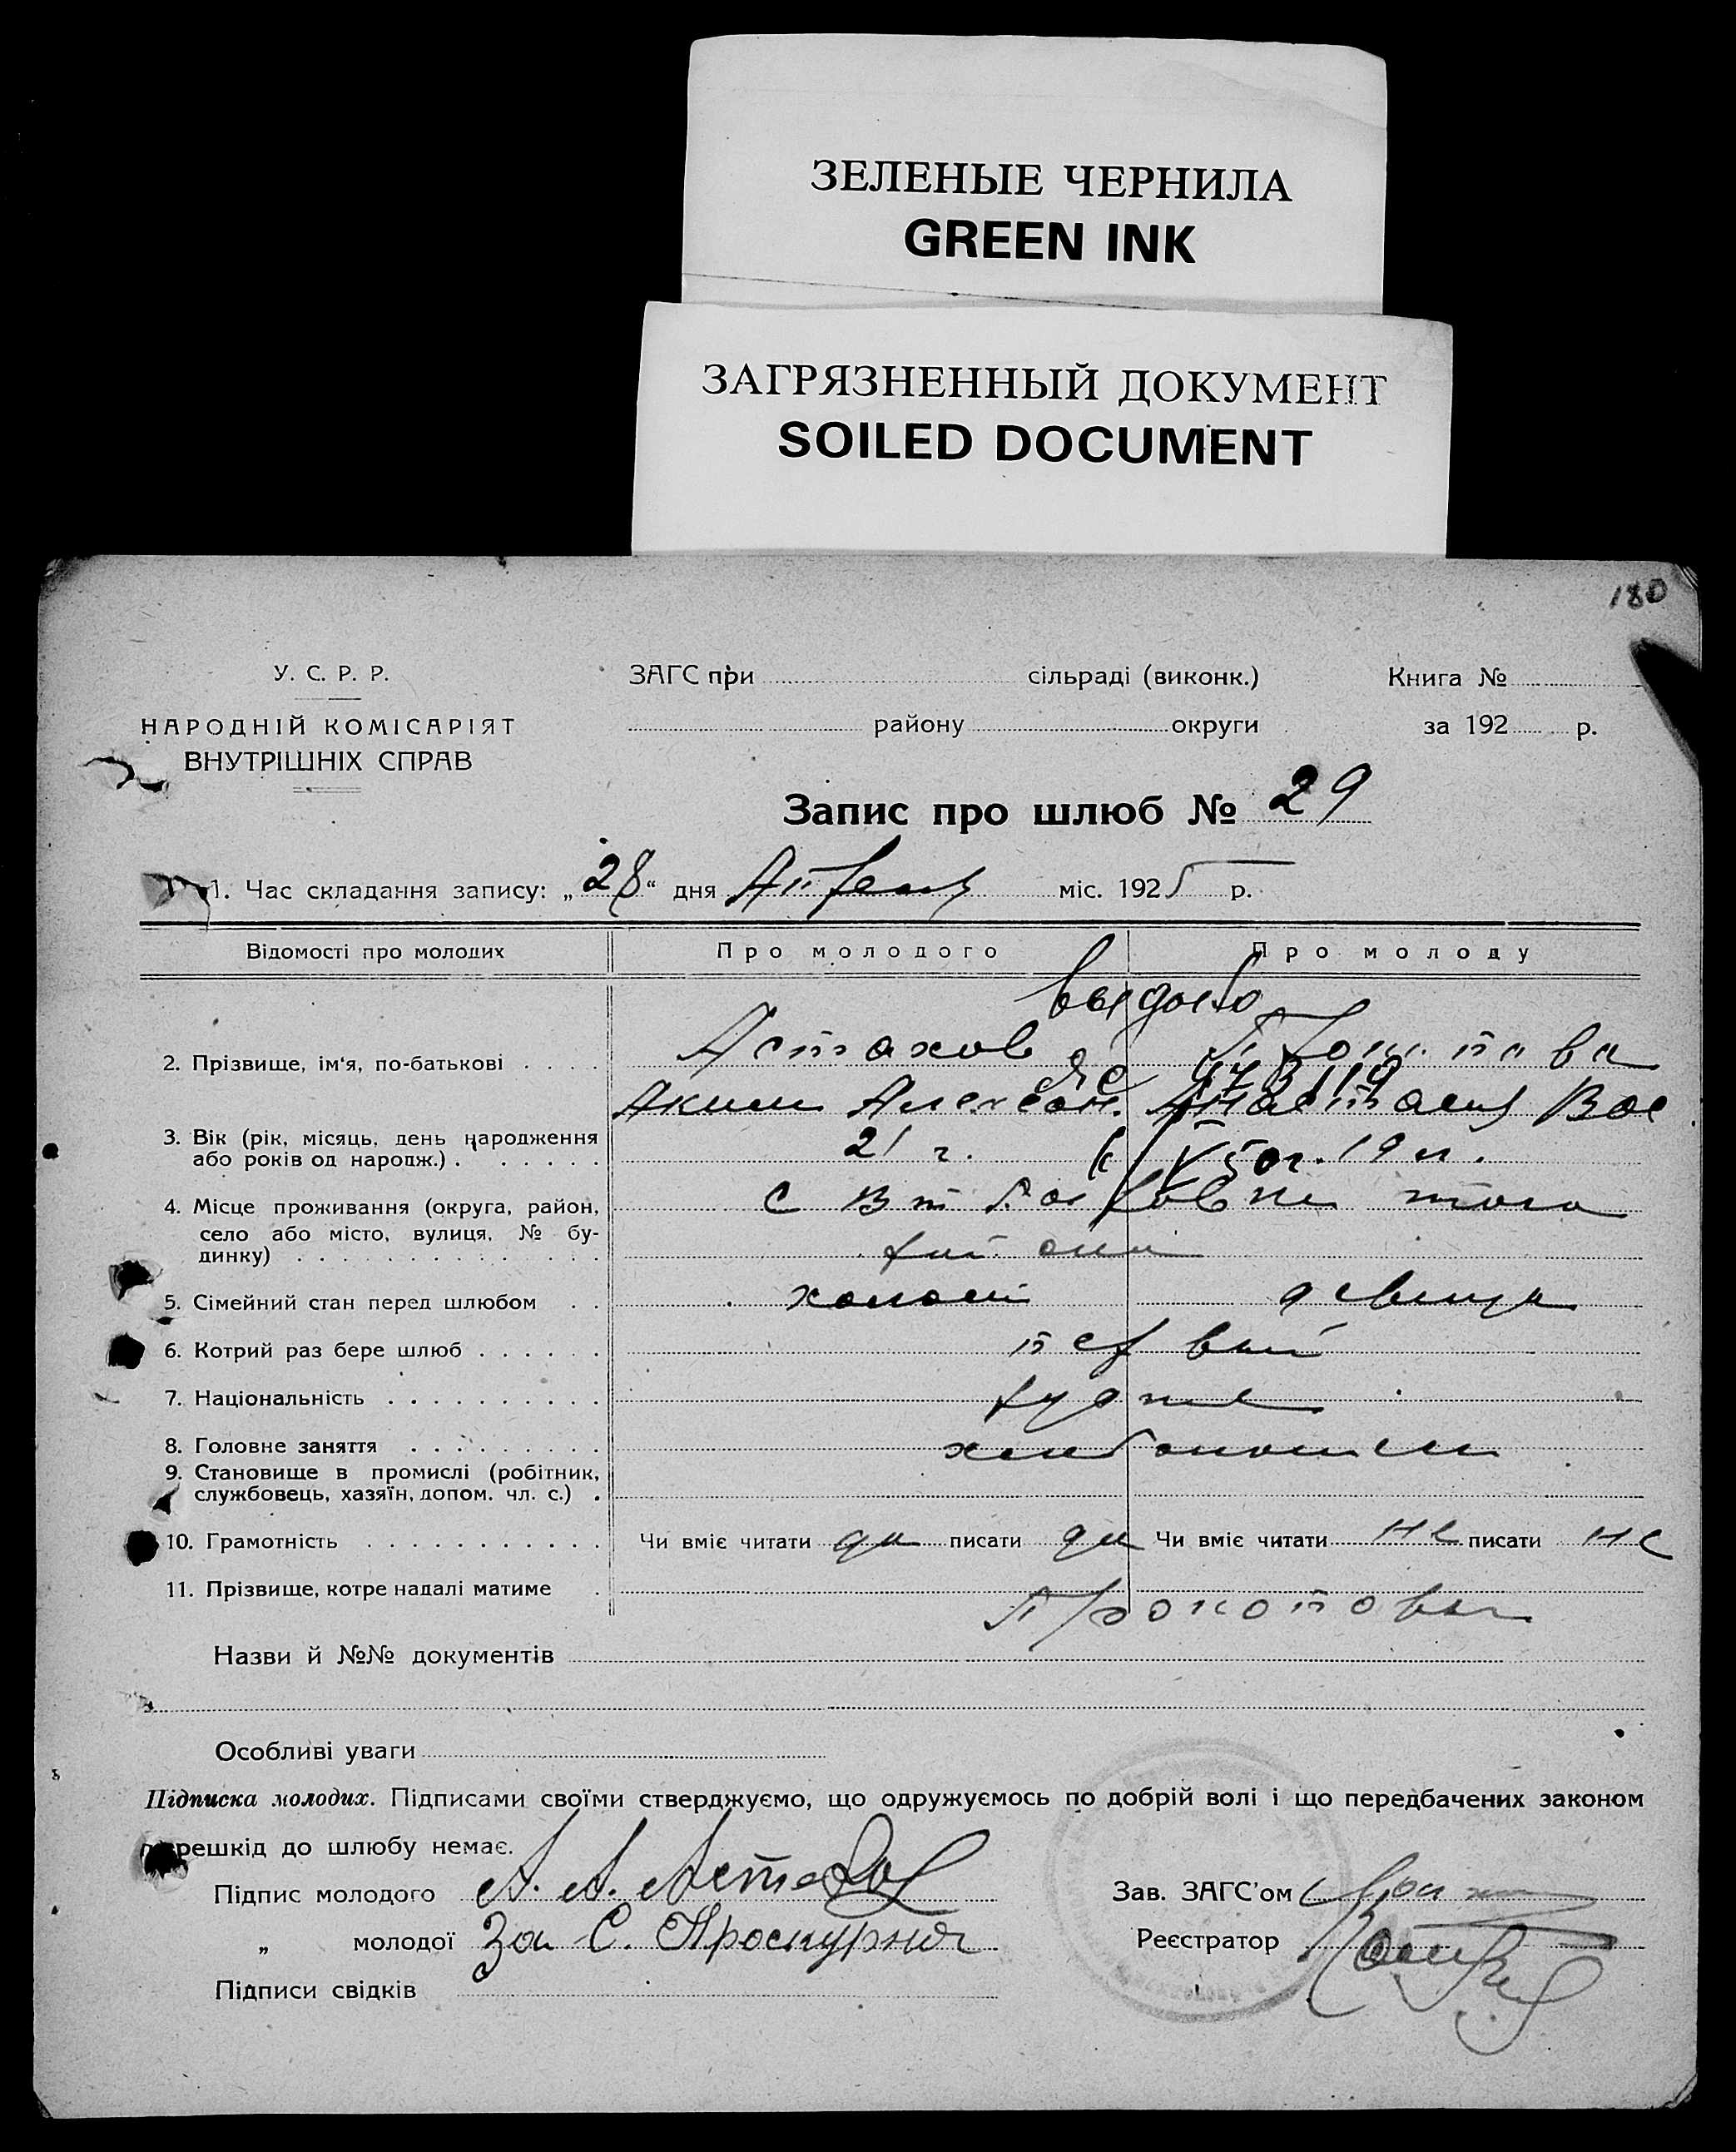 ЗЕЛЕНЫЕ ЧЕРНИЛА
GREEN INK
ЗАГРЯЗНЕННЫЙ ДОКУМЕНТ
SOILED DOCUMENT
180
У. С. Р. Р.
НАРОДНІЙ КОМІСАРІЯТ
ВНУТРІШНІХ СПРАВ
ЗАГС при сільраді (виконк.)
району округи
Книга №
за 192 р.
Запис про шлюб № 29
1. Час складання запису: „28“ дня Апреля міс. 1925 р.
Відомості про молодих Про молодого Про молоду
2. Прізвище, ім'я, по-батькові Астахов
Аким Анастасия Вас
3. Вік (рік, місяць, день народження
або років од народж.) 21 г. 19 л.
4. Місце проживання (округа, район,
село або місто, вулиця, № бу-
динку)
5. Сімейний стан перед шлюбом холост девица
6. Котрий раз бере шлюб первый
7. Національність
8. Головне заняття
9. Становище в промислі (робітник,
службовець, хазяїн, допом. чл. с.)
10. Грамотність Чи вміє читати да писати да Чи вміє читати не писати не
11. Прізвище, котре надалі матиме
Назви й №№ документів
Особливі уваги
Підписка молодих. Підписами своїми стверджуємо, що одружуємось по добрій волі і що передбачених законом
перешкід до шлюбу немає.
Підпис молодого А. А. Астахов
„ молодої За С. Проскурня
Підписи свідків
Зав. ЗАГС'ом
Реєстратор